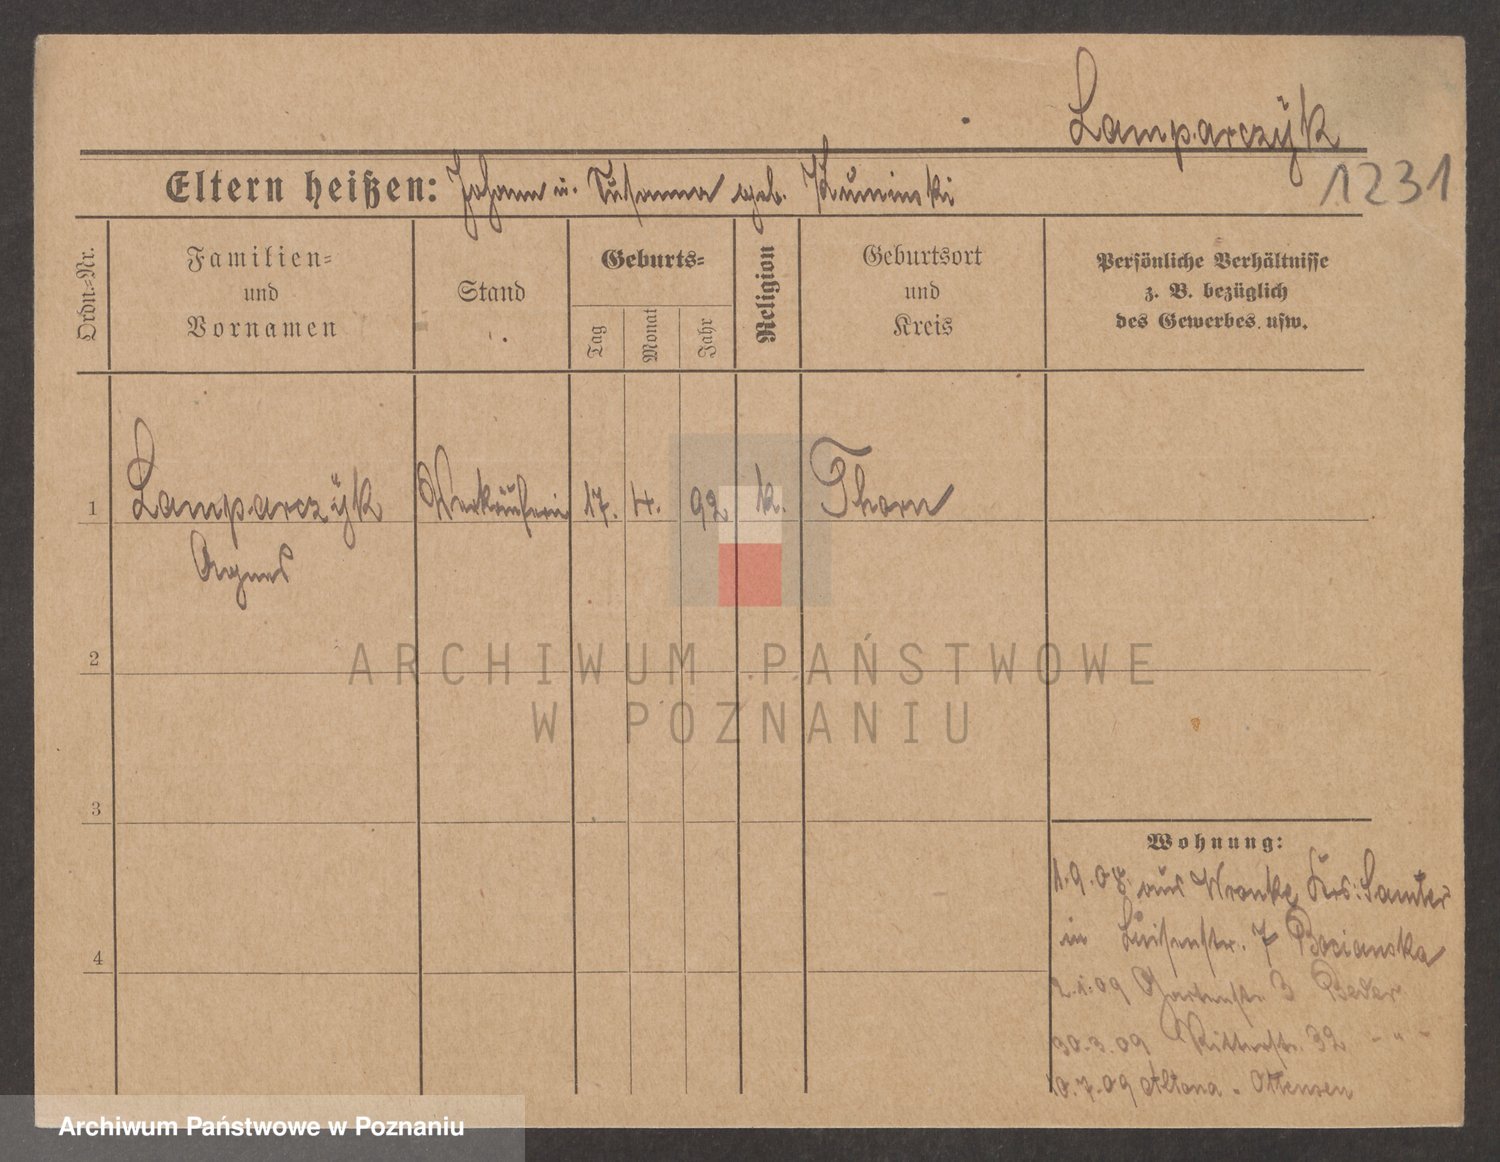 Lamparczÿk
1231
Eltern heißen: Johann u. Susanna geb.
Ordn.-Nr.
Familien-
und
Vornamen
Stand
Geburts-
Tag
Monat
Jahr
Religion
Geburtsort
und
Kreis
Persönliche Verhältnisse
z. B. bezüglich
des Gewerbes usw.
1
Lamparczÿk
Agnes
Verkäuferin
17.
4.
92
k.
Thorn
2
3
4
Wohnung:
1.9.08. aus Wronke Krs: Samter
in Luisenstr. 7 Bocianska
2.1.09 Gartenstr. 3 Beder
30.3.09 Ritterstr. 32 - " -
10.7.09 Altona - Ottensen
ARCHIWUM PAŃSTWOWE
W POZNANIU
Archiwum Państwowe w Poznaniu